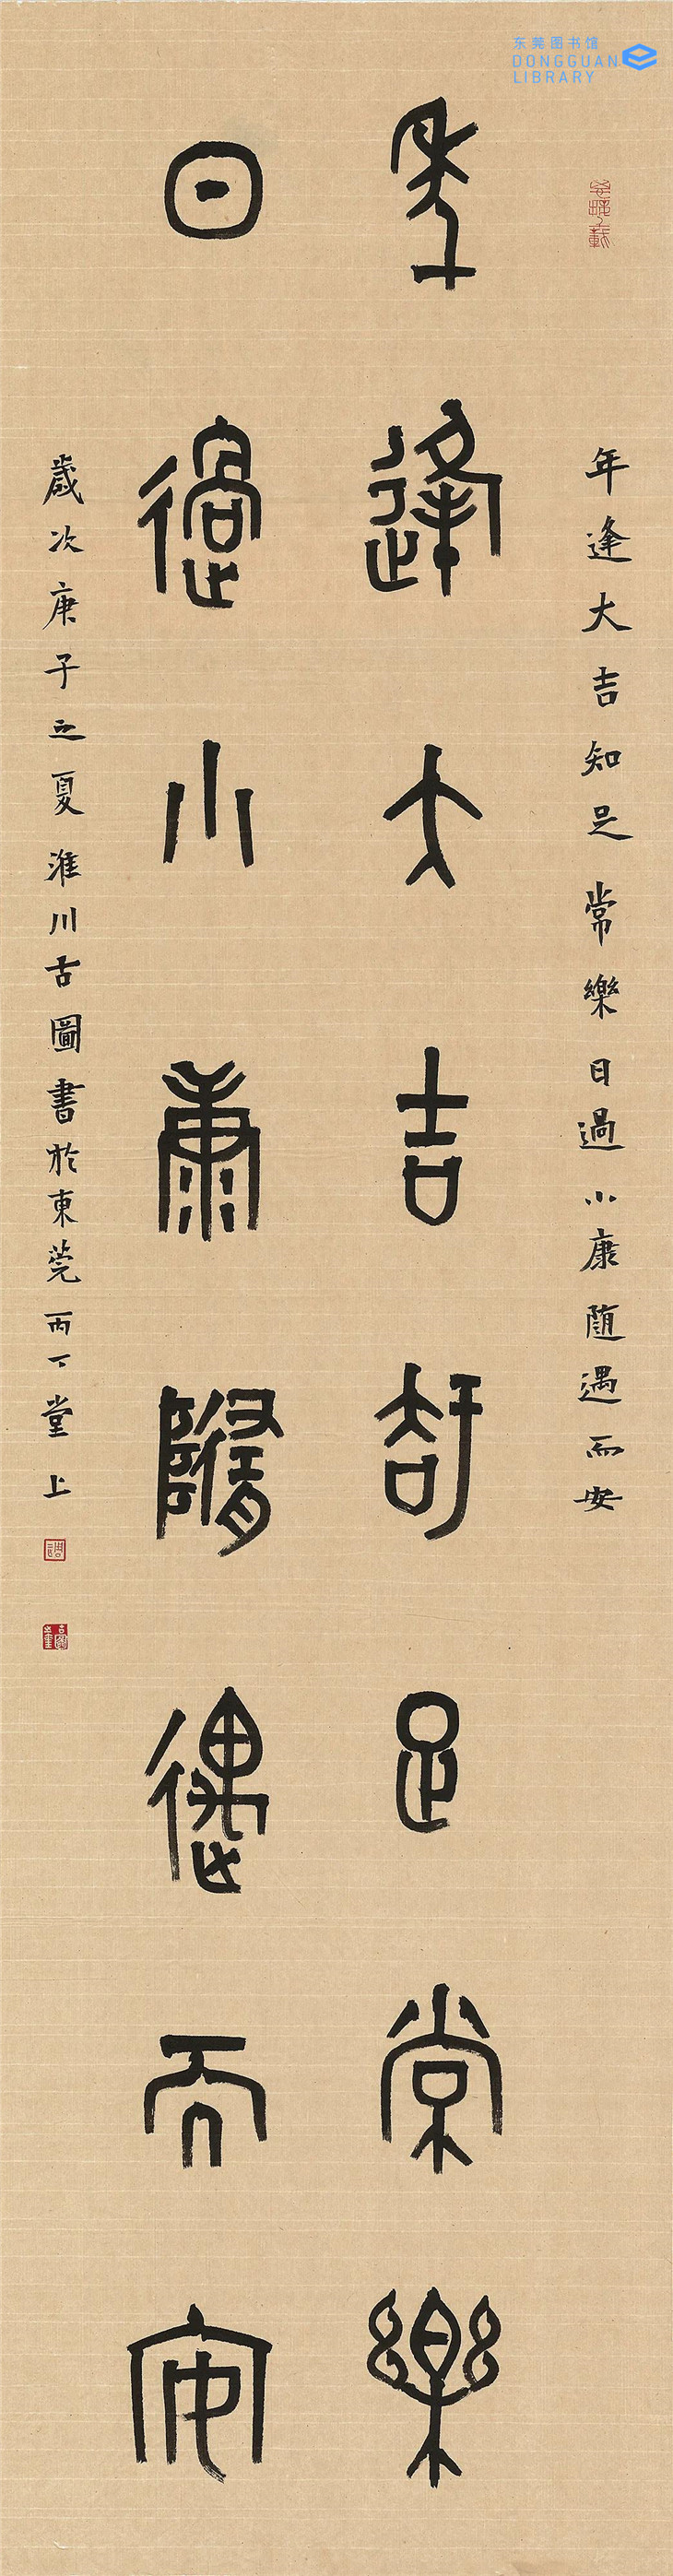 东莞图书馆
DONGGUAN
LIBRARY
年逢大吉知足常樂日過小康随遇而安
年逢大吉知足常樂
日過小康隨遇而安
歲次庚子之夏淮川古圖書於東莞丙丁堂上